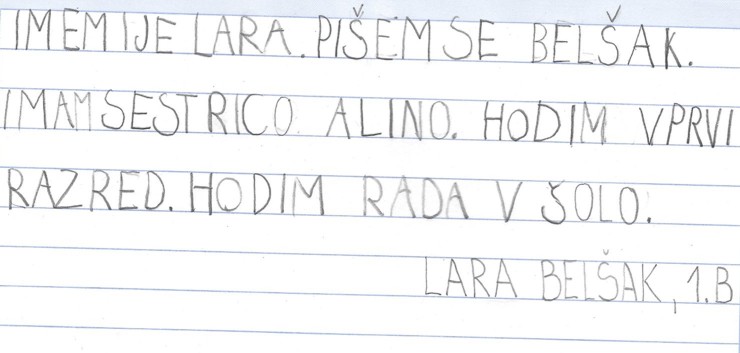 IMEM IJE LARA. PIŠEM SE BELŠAK.
IMAM SESTRICO ALINO. HODIM V PRVI
RAZRED. HODIM RADA V ŠOLO.
LARA BELŠAK, 1.B